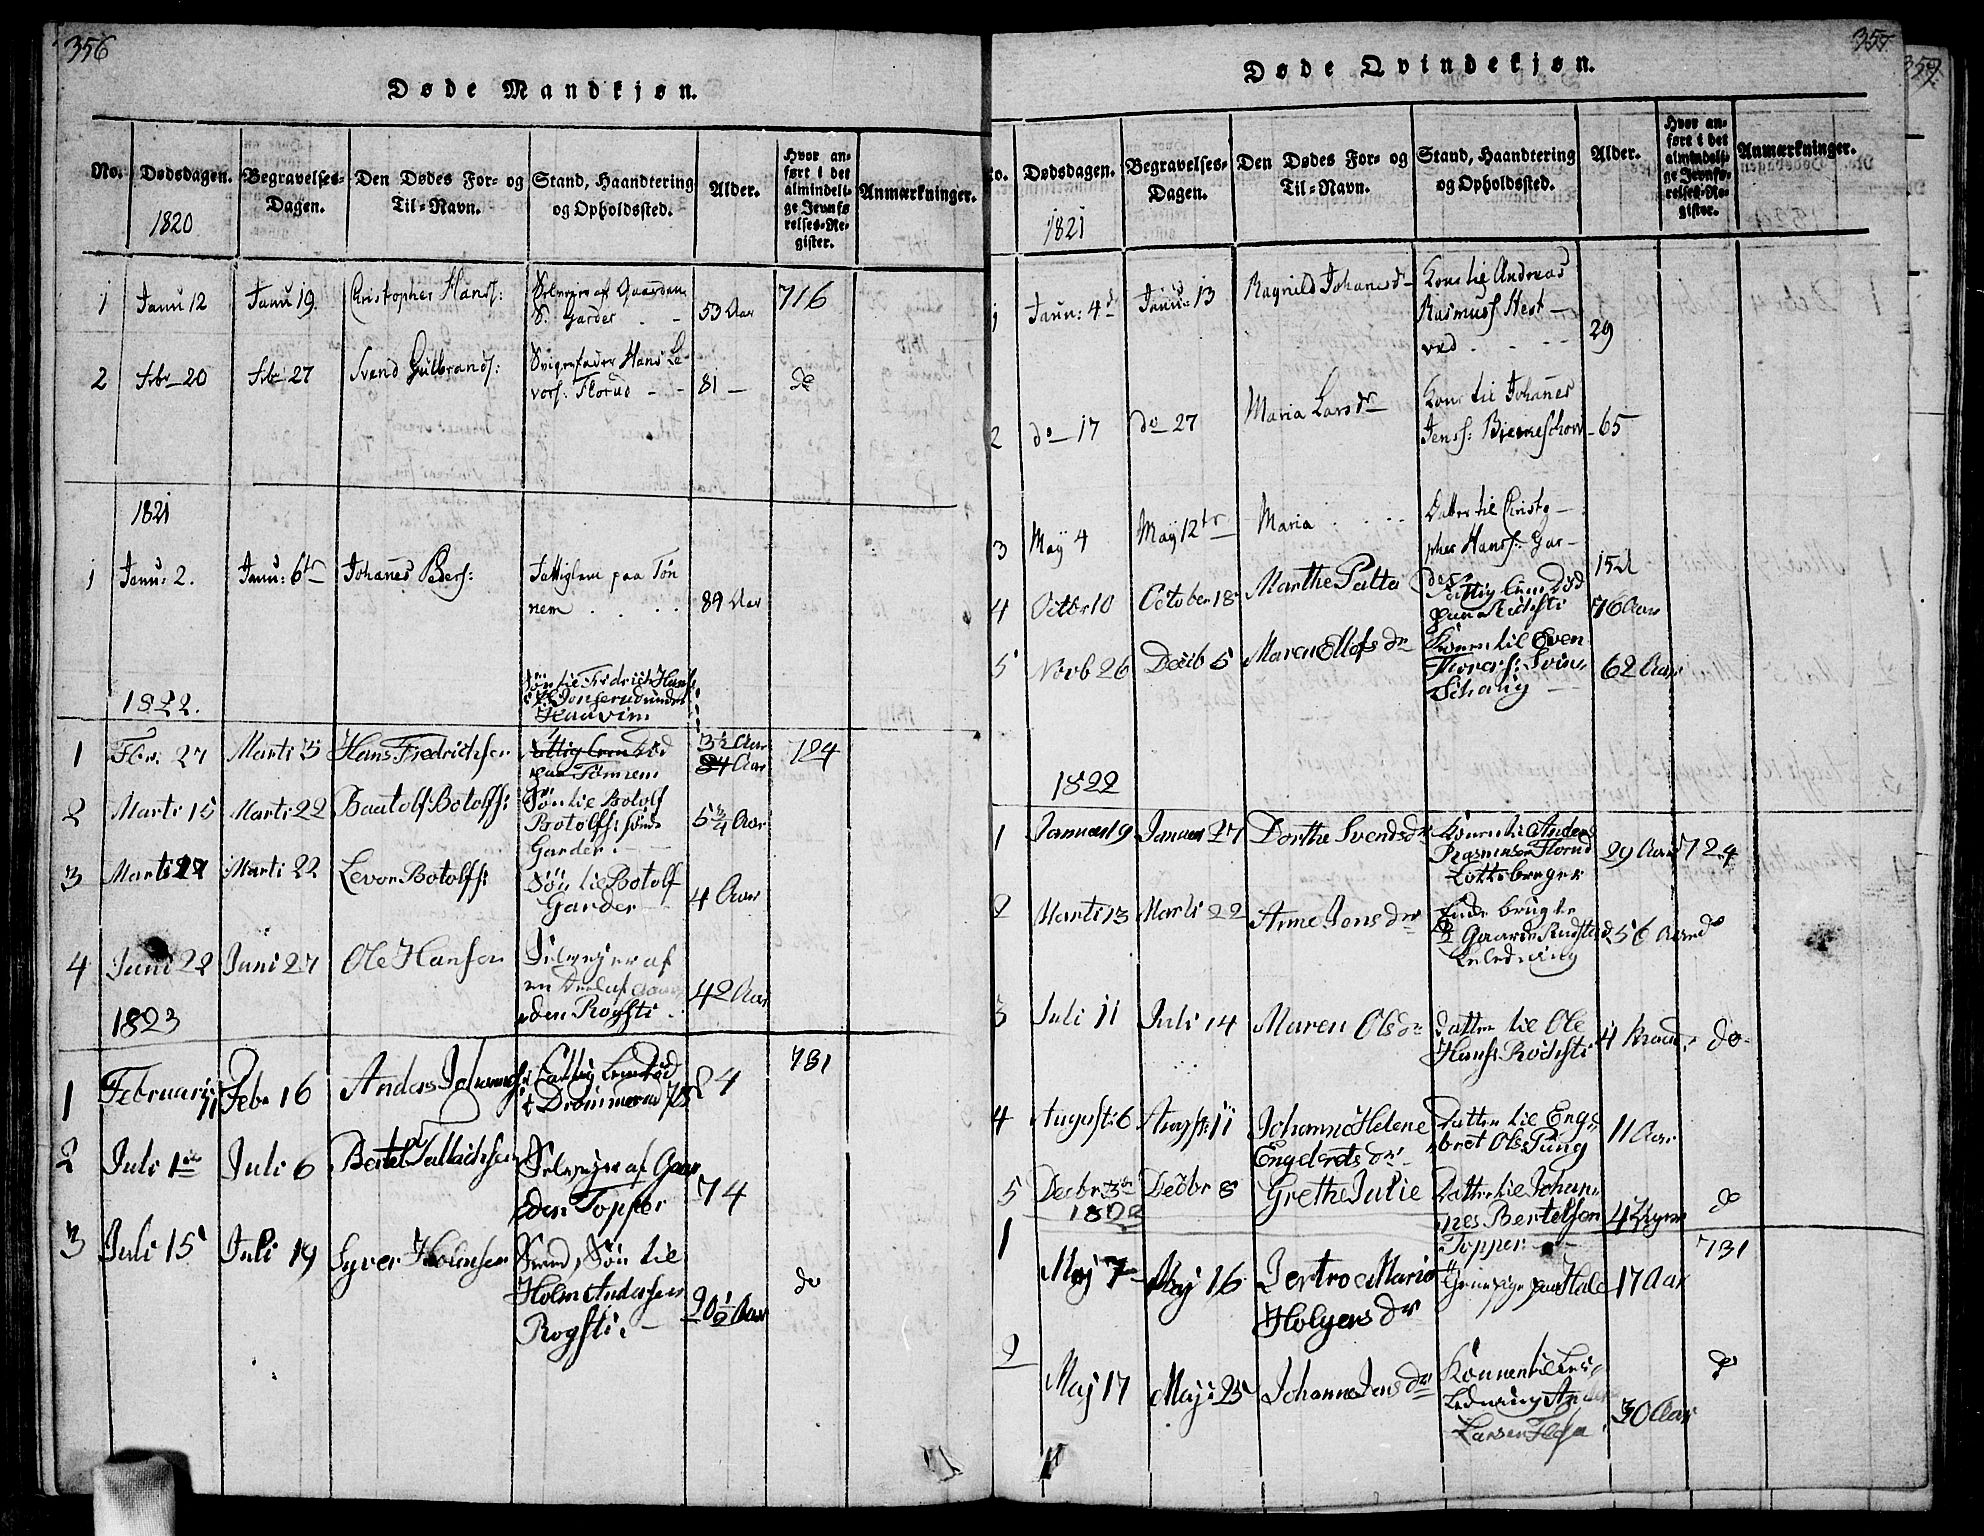 356
Døde Mandkjøn.
No.
Dødsdagen.
Begravelses-
Dagen.
Den Dødes For- og
Til-Navn.
Stand, Haandtering
og Opholdssted.
Alder.
Hvor an-
ført i det
almindeli-
ge Jevnfø
relses-Re-
gister.
Anmærkninger.
1820
1 Janu 12 Janu 19. Christopher Hansf: Selveyer af Gaarden
S. Garder 53 Aar 716
2 Febr 20 Febr 27 Svend Gulbrandsf: Svigerfader Hans Le-
vorsf. Florud 81 do
1821
1 Janu: 2. Janu: 6te Johanes Pedersf: Fattiglem paa Tøn
nem 89 Aar
1822.
Søn til Fredrich Hansf
Haavim
1 Fbr. 27 Marti 3 Hans Fredrichsen 3½ Aar 724
fattig Lem død
paa Tønnem 84 Aar
2 Marti 15 Marti 22 Baatolf Botolfs: Søn til Botolf
Botolfs: søndr
Garder. 5¾ Aar
3 Marti 17 Marti 22 Levor Botolfs: Søn til Botolf
Garder 4 Aar
4 Juni 22 Juni 27 Ole Hansen Selvejer af
en Deel af Gaar
den Rogsti 42 Aar
1823
1 Februari 11 Febr 16 Anders Fattig Lem død
84 731
2 Juli 1 Juli 6 Bertel Tallachsen Selvejer af Gaar
den Topper 74
3 Juli 15 Juli 19 Syver Holmsen Svend, Søn til
Holm Andersen
Rogsti. 20½ Aar do
357
359
Døde Qvindekjøn.
No.
Dødsdagen.
Begravelses-
Dagen.
Den Dødes For- og
Til-Navn.
Stand, Haandtering
og Opholdssted.
Alder.
Hvor an-
ført i det
almindeli-
ge Jevnfø-
relses-Re-
gister.
Anmærkninger.
1821
1 Janu: 4d Janu: 13 Ragnild Johanesd Kone til Andreas
Rasmusf Hest-
ved 29
2 do 17 do 27 Maria Larsdr Kone til Johanes
Jensf: Bierneschov 65
3 May 4 May 12te Maria Datter til Christo-
pher Hansf: Gar-
der
4 Octbr 10 October 18 Marthe fattig Lem død
76 Aar
5 Novb 26 Decb 5 Maren Ellefs dr Konen til Even
Svin
Schoug 62 Aar
1822
1 Januar 19 Januar 27 Dorthe Svendsdr Konen til Anders
Rasmusen Florud
Lottsbruger 29 Aar 724
2 Marti 13 Marti 22 Anne Jons dr
Gaarden
56 Aar do
3 Juli 11 Juli 14 Maren Olsdr Datter til Ole
Hansf Rodhsti do
4 Augusti 6 Augsti 11 Johanne Helene
Engebrets dr Datter til Eng-
bret Ols: Pung 11 Aar
5 Decbr 3 Decbr 8 Grethe Julie Datter til Johan-
nes Bertelsen
Topper 4 Uger do
1822
1 Maj 7 Maj 16 Jertroe Marie
Holgers dr 17 Aar 731
2 Maj 17 Maj 25 Johanne Jens dr Konnen til Lei-
Lænding An
Larsen Flesa 30 Aar do